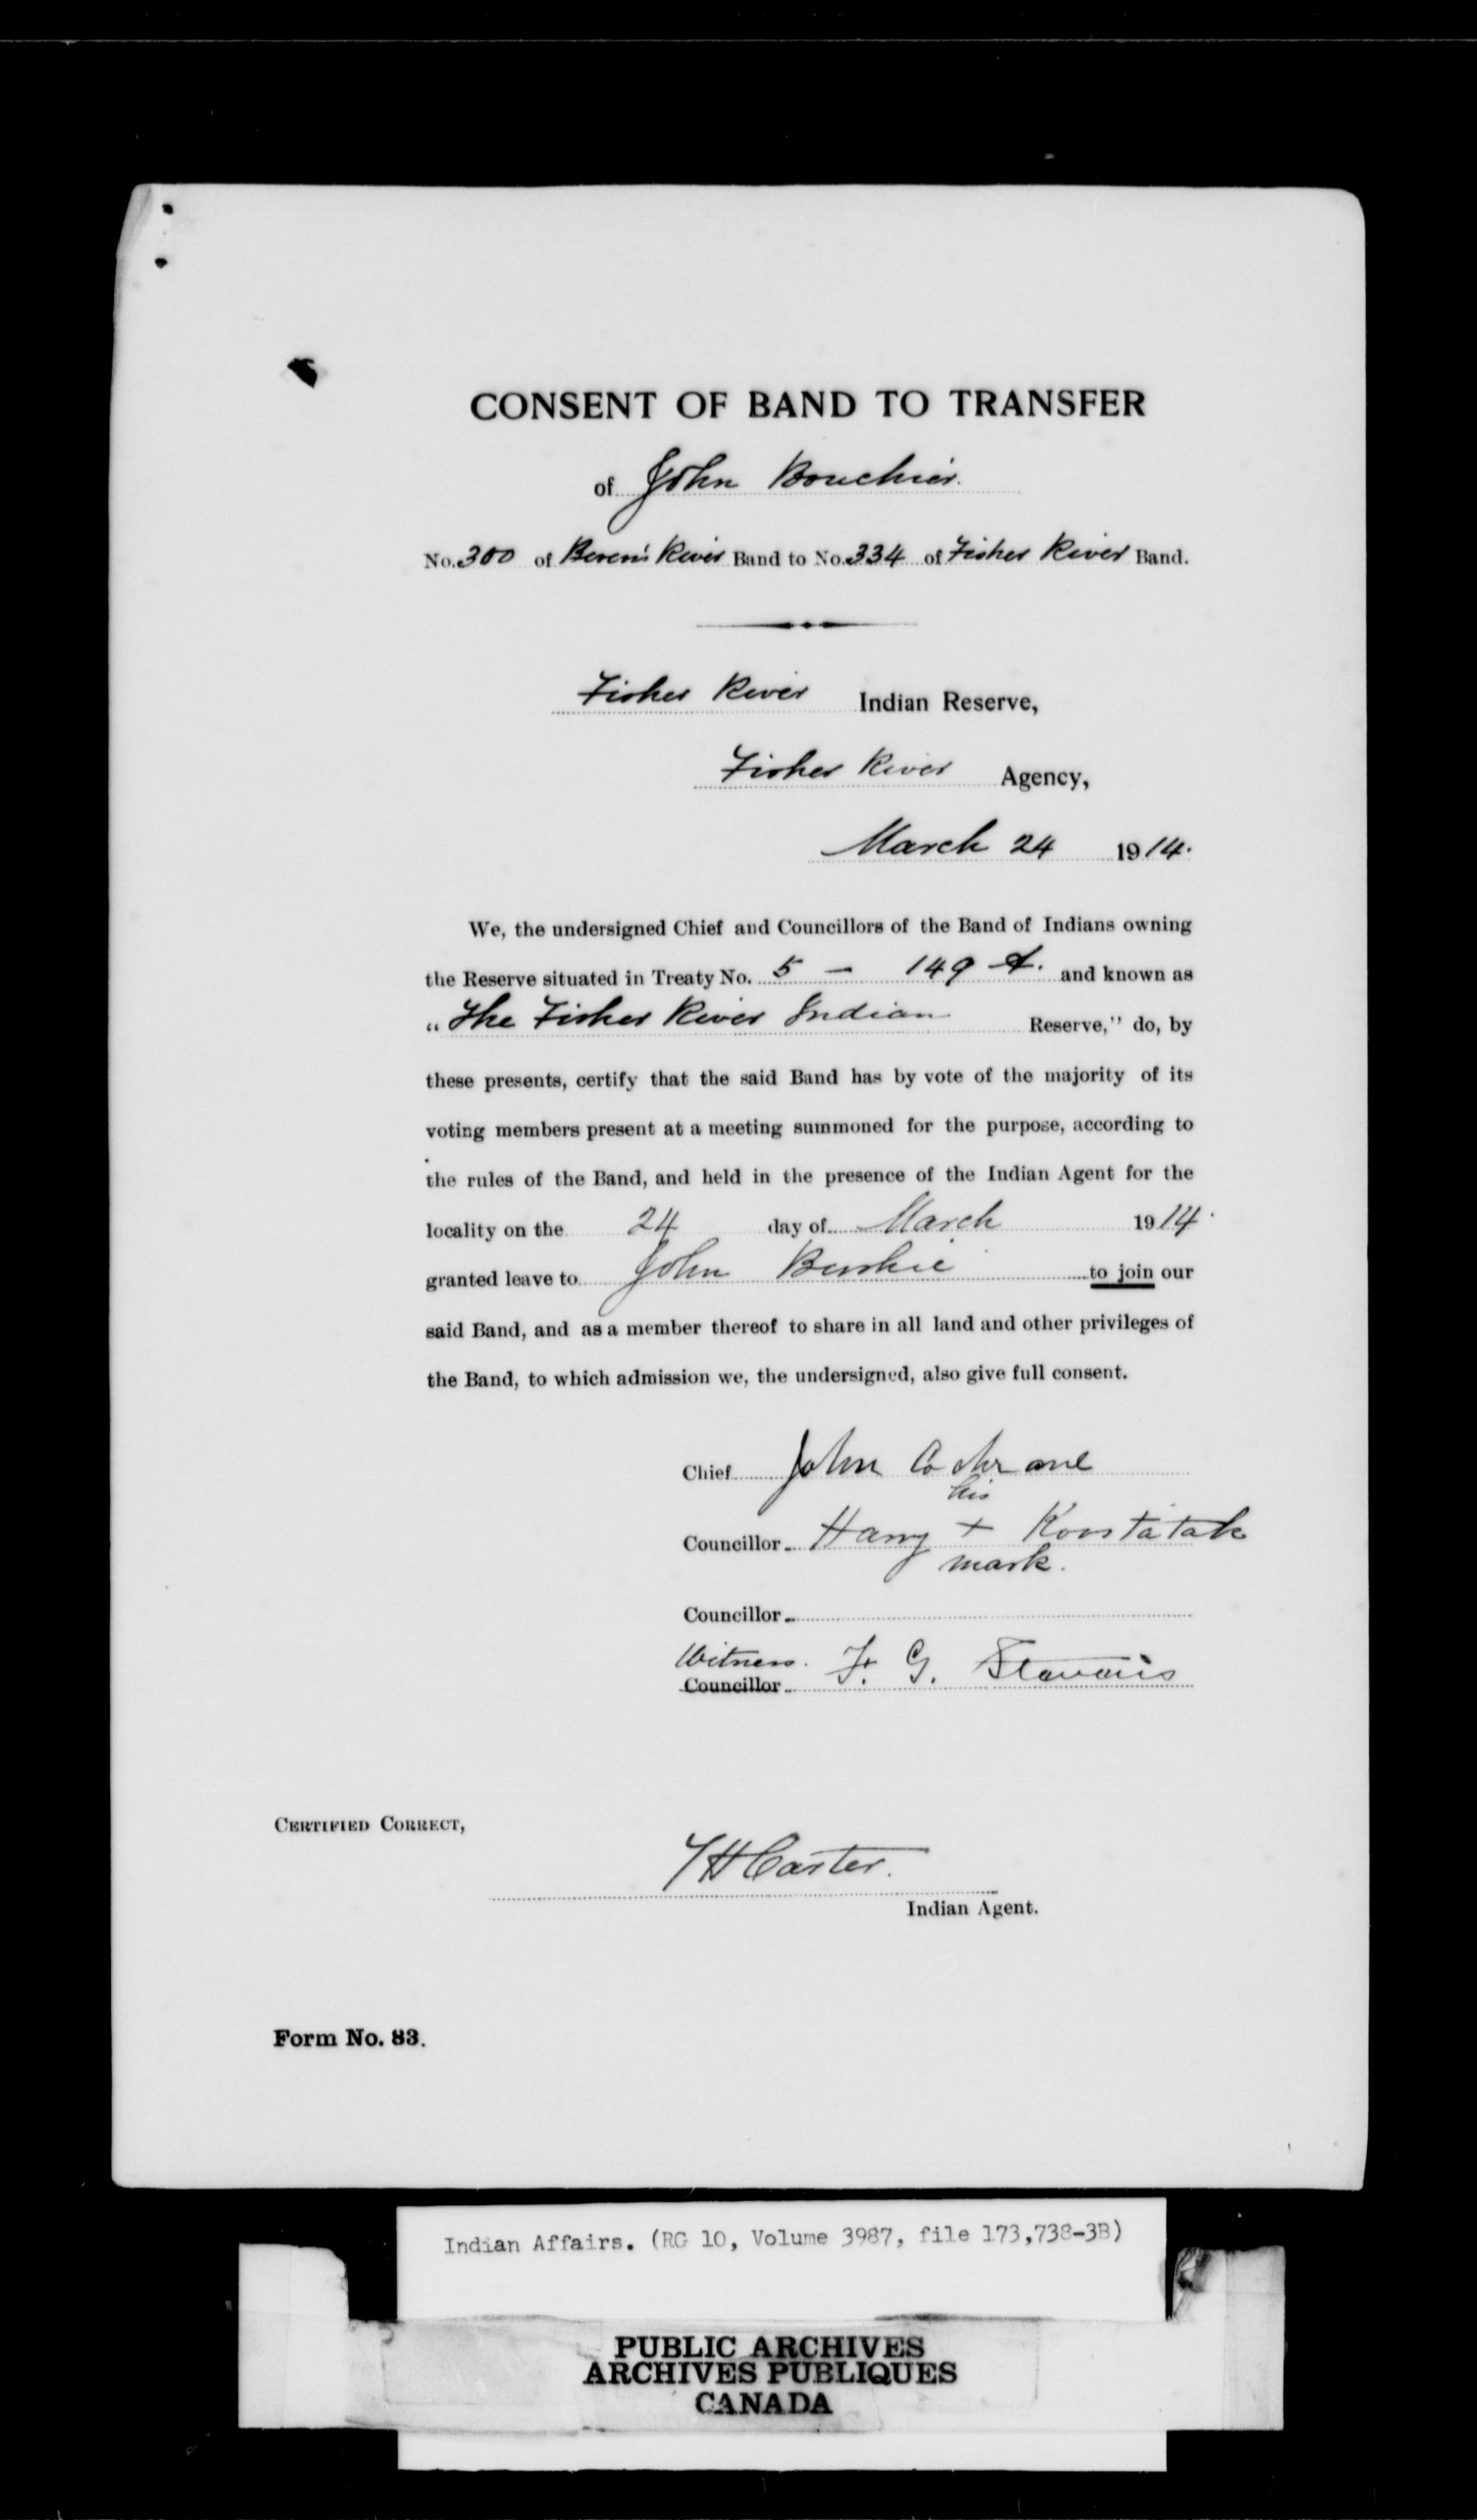 CONSENT OF BAND TO TRANSFER
of John Bouchier.
No. 300 of Beren's River Band to No. 334 of Fisher River Band.
Fisher River Indian Reserve,
Fisher River Agency,
March 24 1914.
We, the undersigned Chief and Councillors of the Band of Indians owning
the Reserve situated in Treaty No. 5 - 149 and known as
"The Fisher River Indian Reserve," do, by
these presents, certify that the said Band has by vote of the majority of its
voting members present at a meeting summoned for the purpose, according to
the rules of the Band, and held in the presence of the Indian Agent for the
locality on the 24 day of March 1914.
granted leave to John to join our
said Band, and as a member thereof to share in all land and other privileges of
the Band, to which admission we, the undersigned, also give full consent.
Chief John Cochrane
his
Councillor Harry + Koostatak
mark.
Councillor
Witness.
Councillor F. G. Stevens
CERTIFIED CORRECT,
T H Carter.
Indian Agent.
Form No. 83.
Indian Affairs. (RG 10, Volume 3987, file 173,738-3B)
PUBLIC ARCHIVES
ARCHIVES PUBLIQUES
CANADA